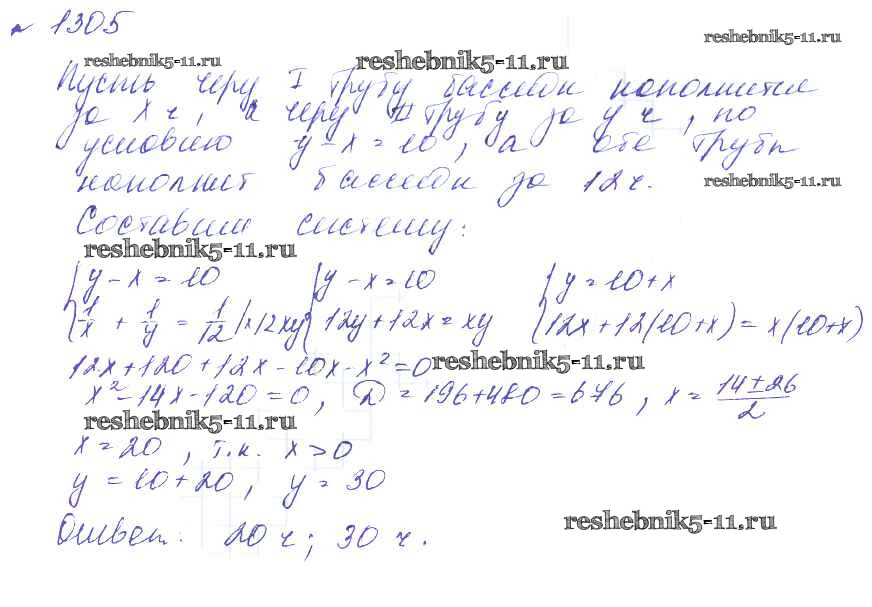 № 1305
reshebnik5-11.ru
reshebnik5-11.ru reshebnik5-11.ru
Пусть через I трубу бассейн наполнится
за x ч, а через II трубу за y ч, по
условию y - x = 10, а обе трубы
наполнят бассейн за 12 ч. reshebnik5-11.ru
Составим систему:
reshebnik5-11.ru
{ y - x = 10 { y - x = 10 { y = 10 + x
{ 1/x + 1/y = 1/12 | x12xy { 12y + 12x = xy { 12x + 12(10 + x) = x(10 + x)
12x + 120 + 12x - 10x - x² = 0 reshebnik5-11.ru
x² - 14x - 120 = 0, D = 196 + 480 = 676, x = (14 ± 26)/2
reshebnik5-11.ru
x = 20, т.к. x > 0
y = 10 + 20, y = 30
reshebnik5-11.ru
Ответ: 20 ч; 30 ч.